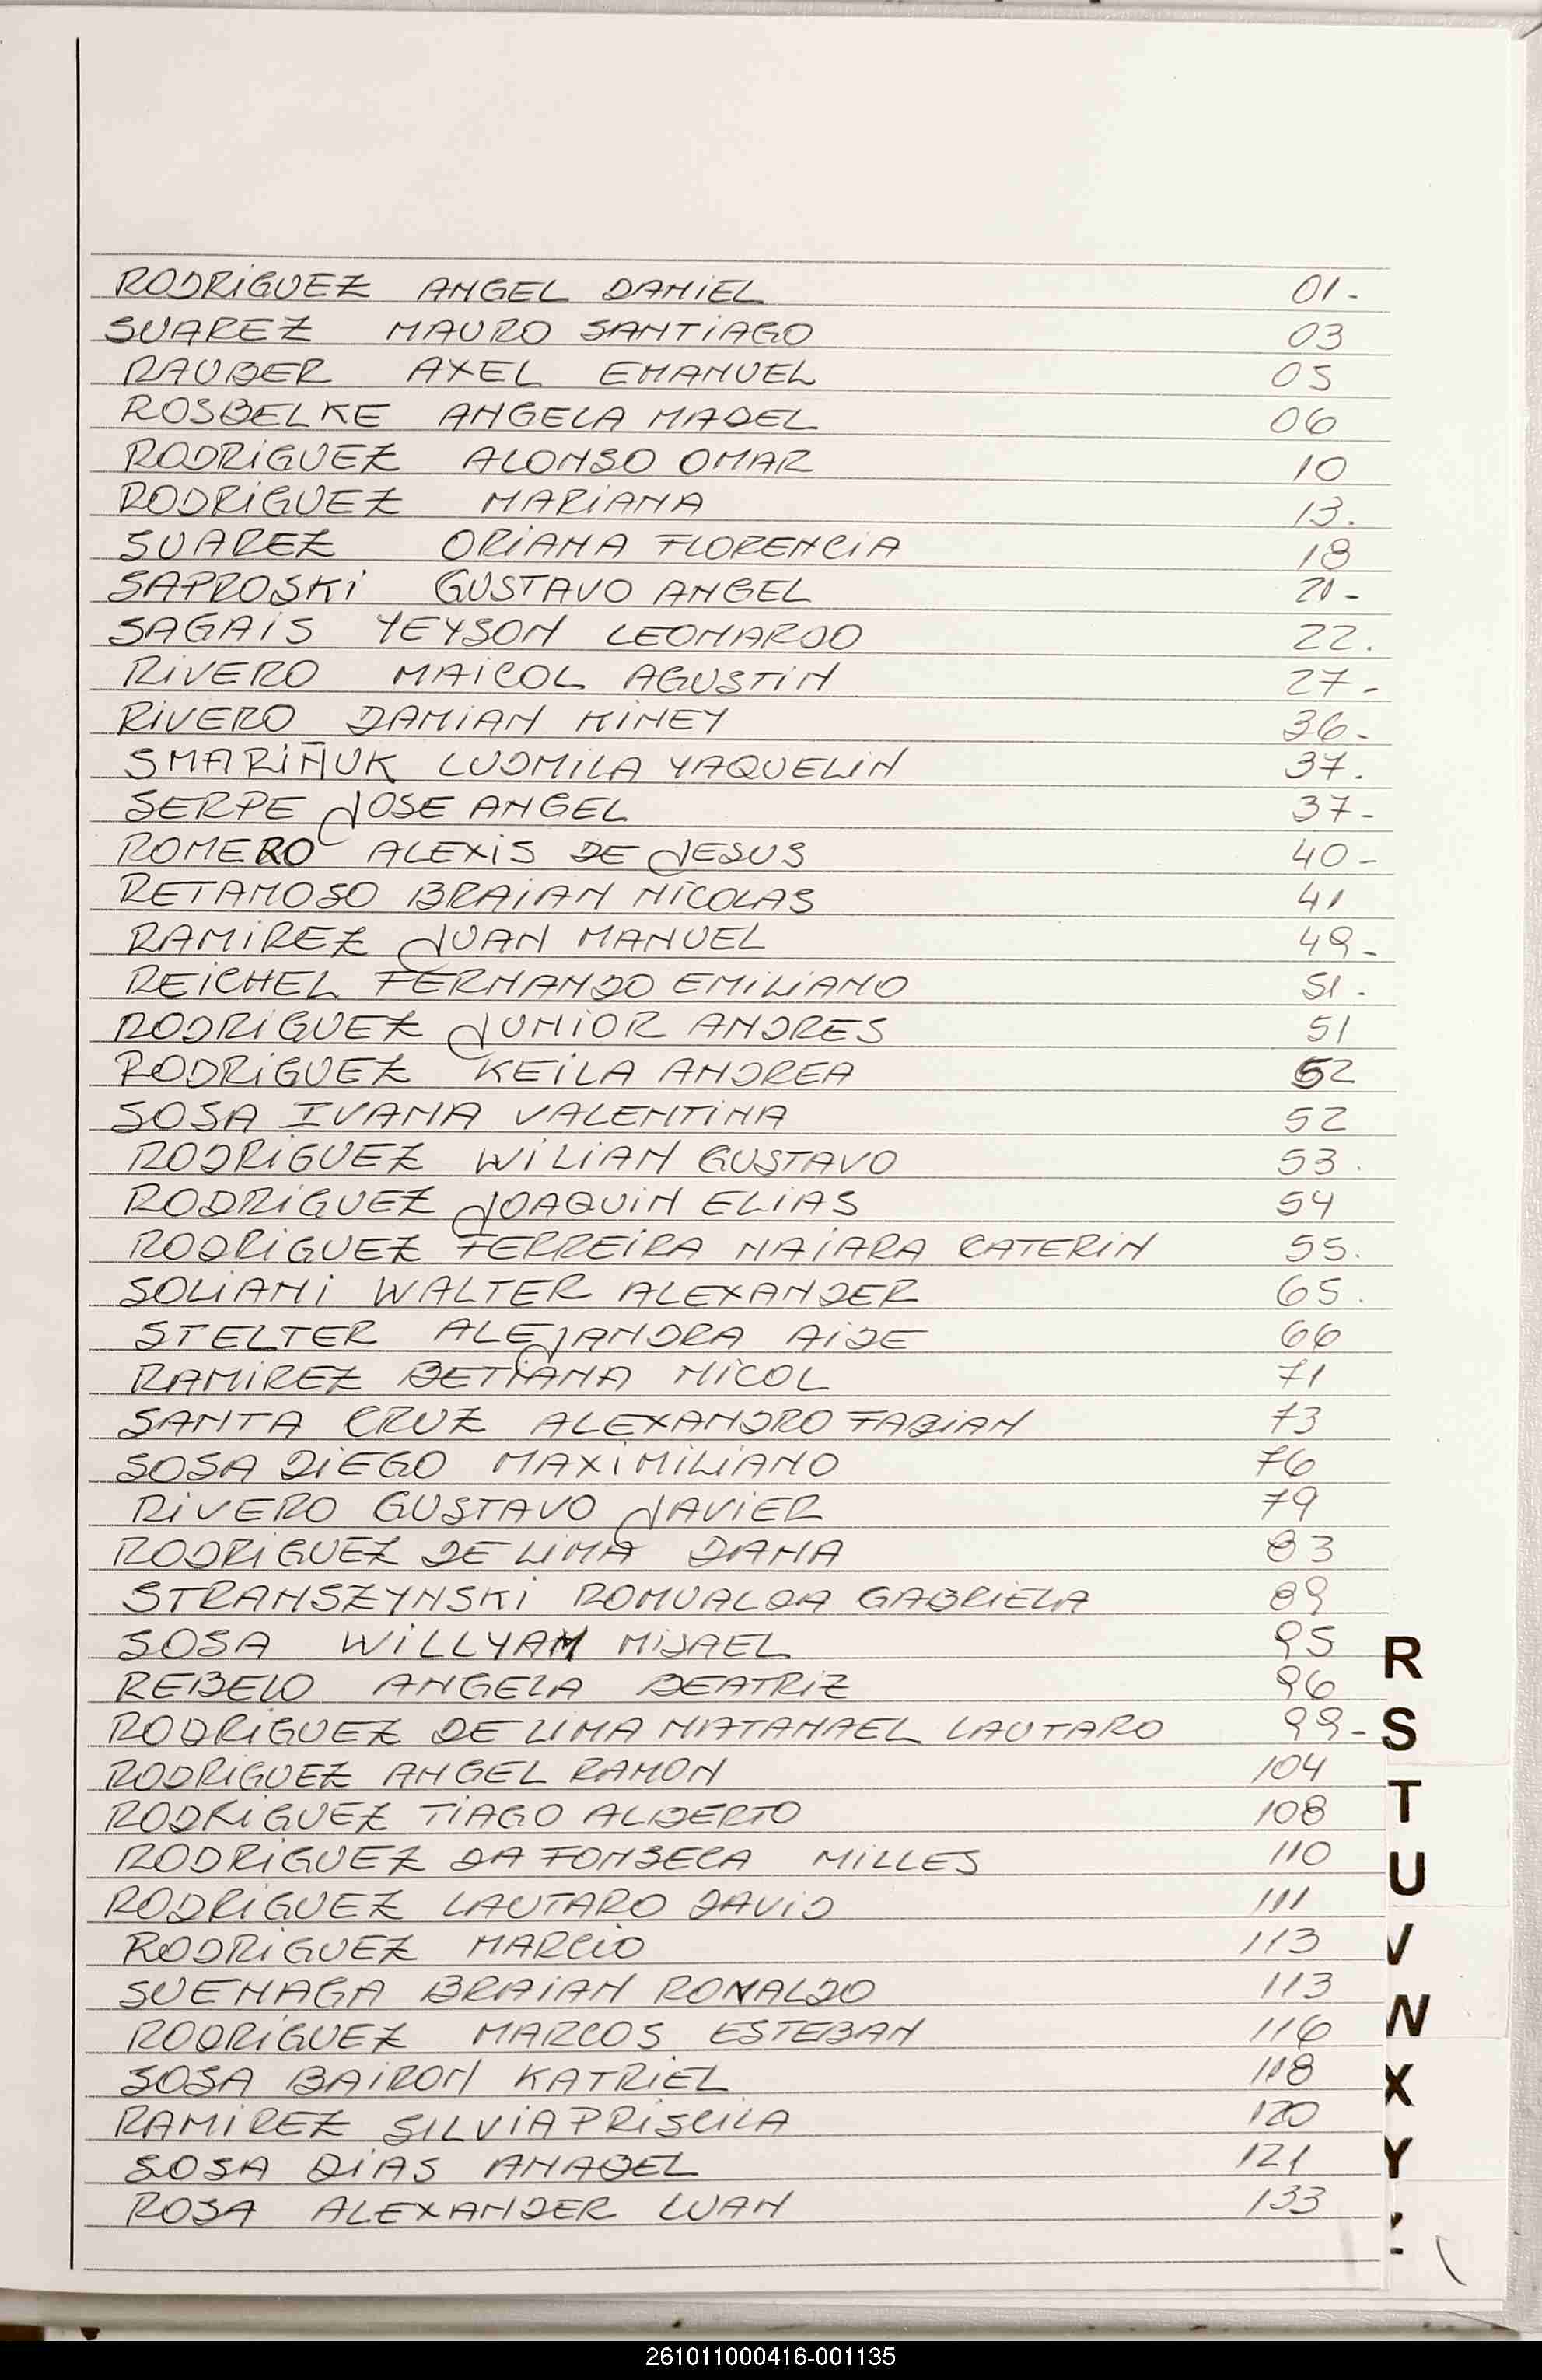 RODRIGUEZ ANGEL DANIEL 01-
SUAREZ MAURO SANTIAGO 03
RAUBER AXEL EMANUEL 05
ROSBELKE ANGELA MABEL 06
RODRIGUEZ ALONSO OMAR 10
RODRIGUEZ MARIANA 13.
SUAREZ ORIANA FLORENCIA 18
SAPROSKI GUSTAVO ANGEL 21-
SAGAIS YEYSON LEONARDO 22.
RIVERO MAICOL AGUSTIN 27-
RIVERO DAMIAN KINEY 36-
SMARIÑUK LUDMILA YAQUELIN 37.
SERPE JOSE ANGEL 37-
ROMERO ALEXIS DE JESUS 40-
RETAMOSO BRAIAN NICOLAS 41
RAMIREZ JUAN MANUEL 49-
REICHEL FERNANDO EMILIANO 51.
RODRIGUEZ JUNIOR ANDRES 51
RODRIGUEZ KEILA ANDREA 52
SOSA IVANA VALENTINA 52
RODRIGUEZ WILIAN GUSTAVO 53.
RODRIGUEZ JOAQUIN ELIAS 54
RODRIGUEZ FERREIRA NAIARA CATERIN 55.
SOLIANI WALTER ALEXANDER 65.
STELTER ALEJANDRA AIDE 66
RAMIREZ BETIANA NICOL 71
SANTA CRUZ ALEXANDRO FABIAN 73
SOSA DIEGO MAXIMILIANO 76
RIVERO GUSTAVO JAVIER 79
RODRIGUEZ DE LIMA DANA 83
STRANSZYNSKI ROMUALDA GABRIELA 89
SOSA WILLYAM MISAEL 95
REBELO ANGELA BEATRIZ 96
RODRIGUEZ DE LIMA NATANAEL LAUTARO 99-
RODRIGUEZ ANGEL RAMON 104
RODRIGUEZ TIAGO ALBERTO 108
RODRIGUEZ DA FONSECA MILLES 110
RODRIGUEZ LAUTARO DAVID 111
RODRIGUEZ MARCIO 113
SUENAGA BRAIAN RONALDO 113
RODRIGUEZ MARCOS ESTEBAN 116
SOSA BAIRON KATRIEL 118
RAMIREZ SILVIA PRISCILA 120
SOSA DIAS ANABEL 121
ROSA ALEXANDER LUAN 133
R
S
T
U
V
X
Y
261011000416-001135